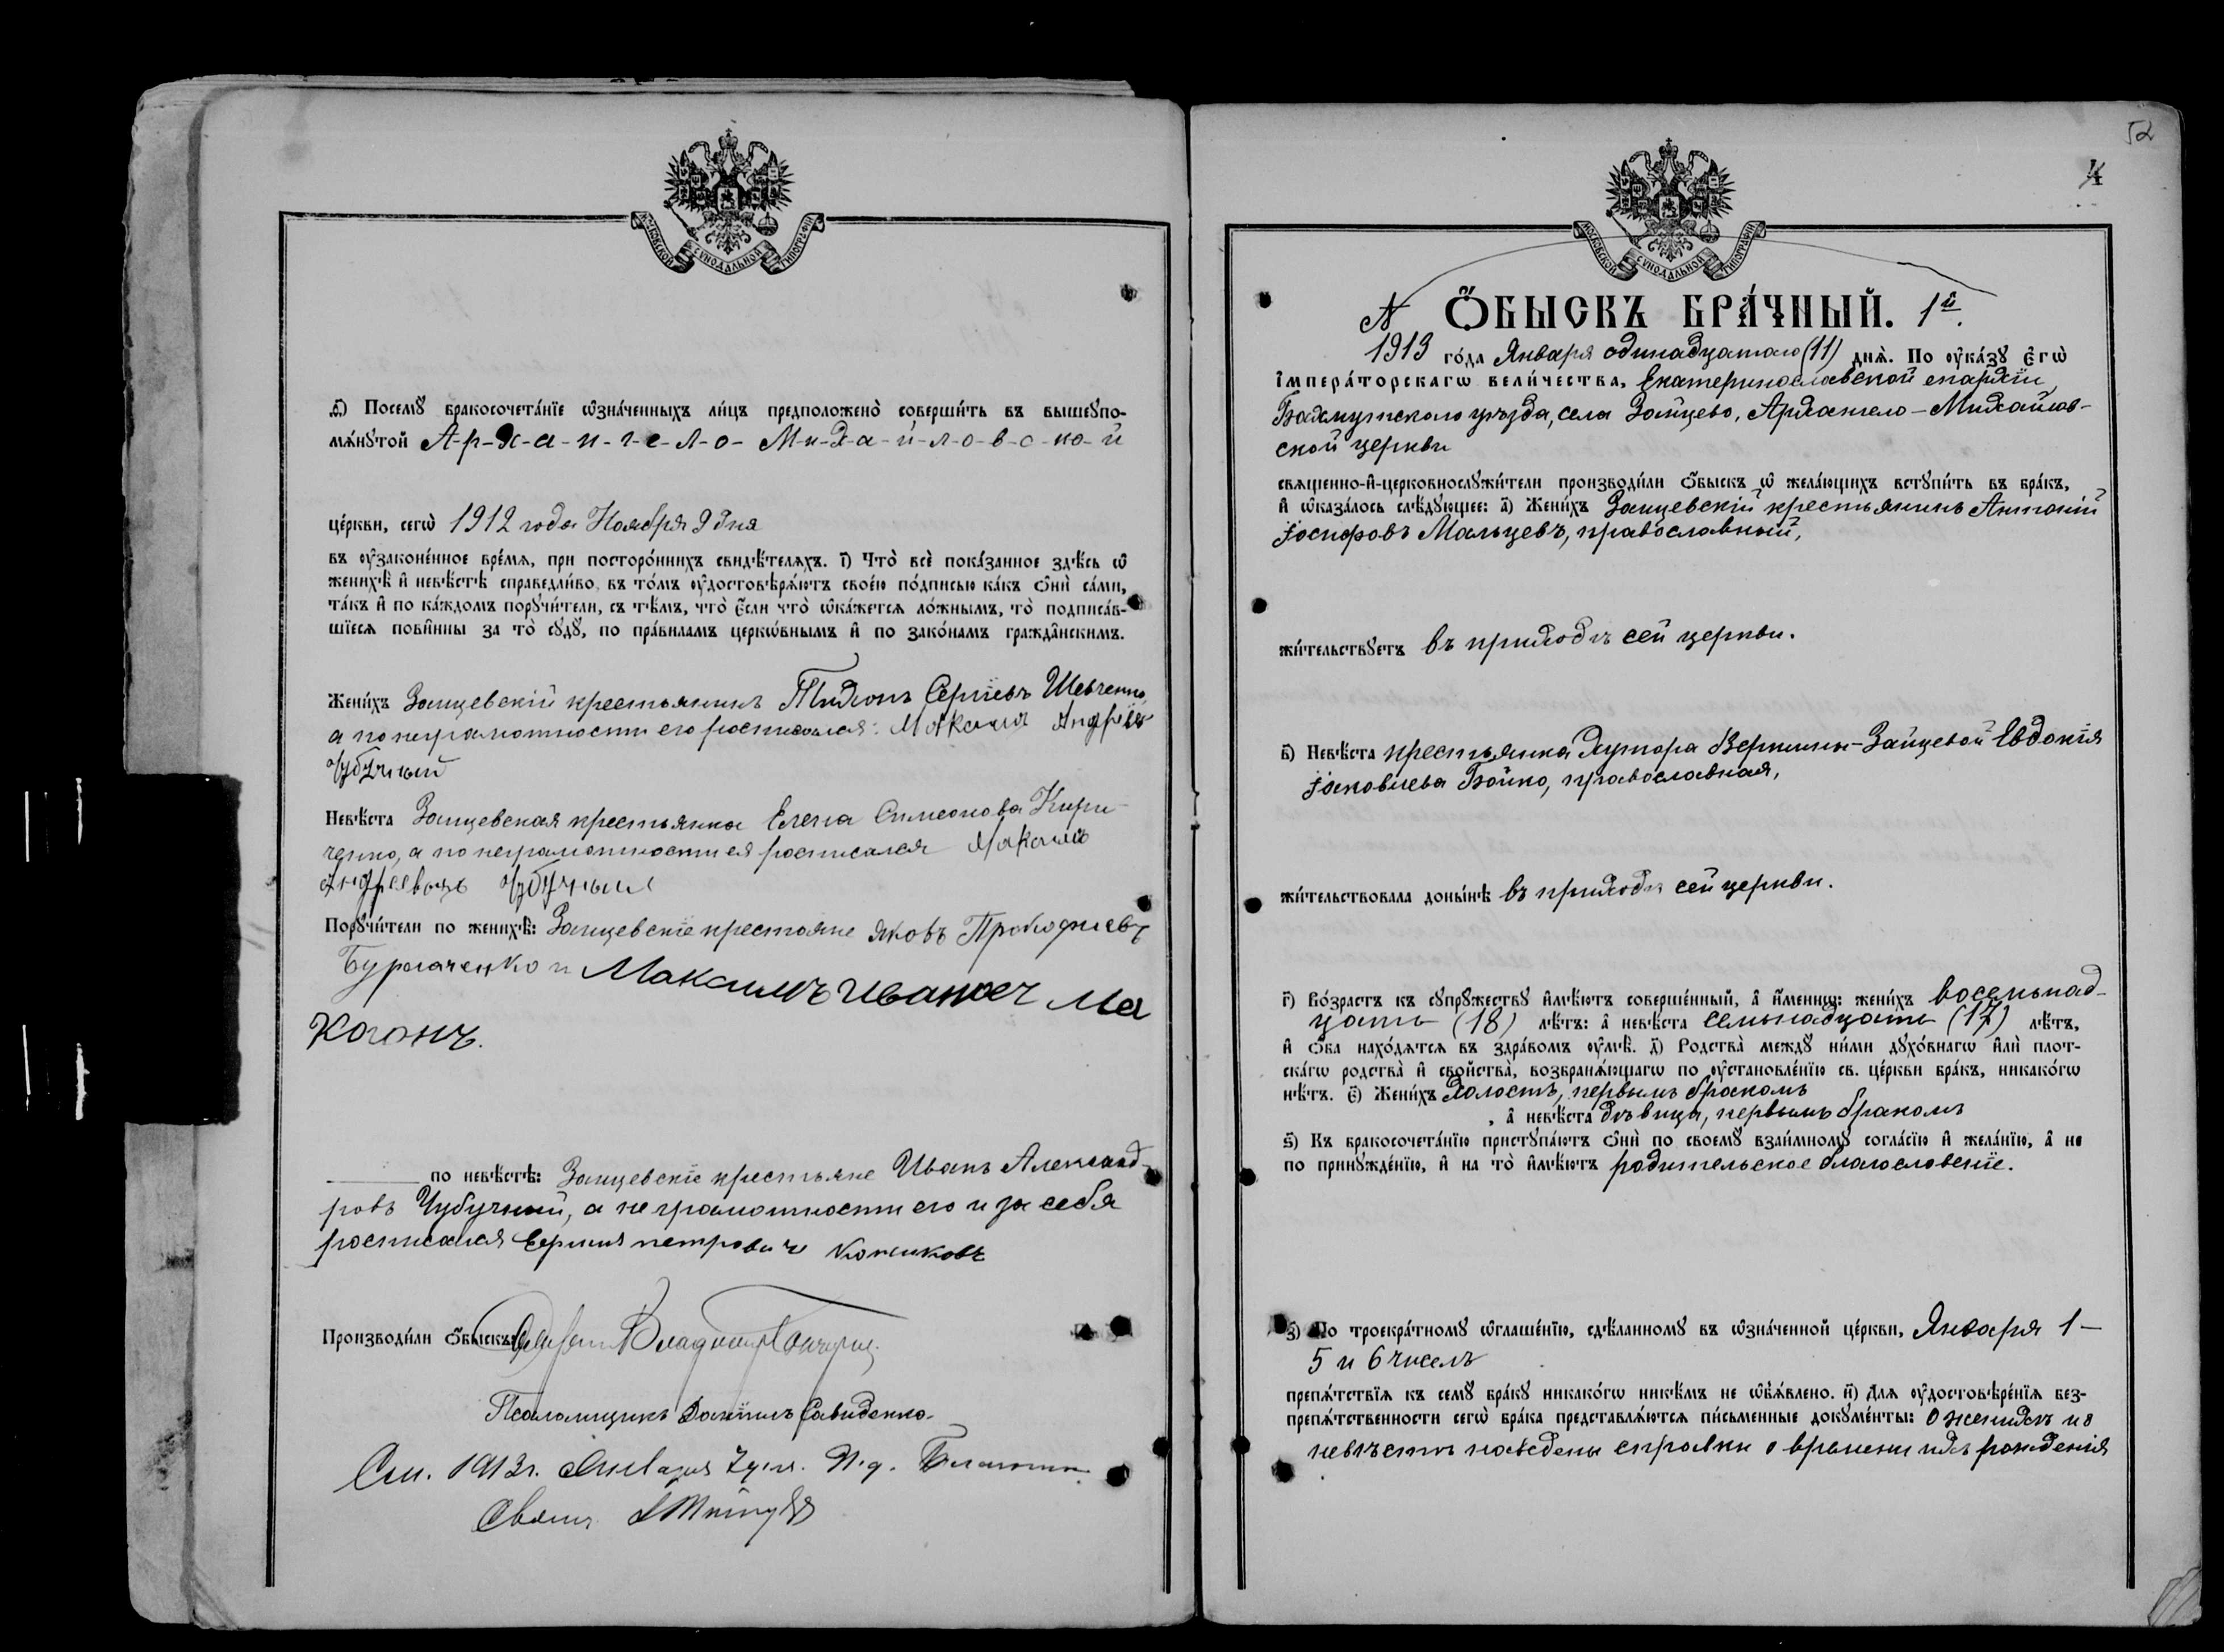 МОСКОВСКОЙ СУНОДАЛЬНОЙ ТИПОГРАФІИ
Посемꙋ̀ бракосочета́нїе ѡ҆зна́ченныхъ ли́цъ предположено̀ соверши́ть въ вышеꙋпо-
мѧ́нꙋтой А-р-х-а-н-г-е-л-о- М-и-х-а-й-л-о-в-с-ко-й
це́ркви, сегѡ̀ 1912 года Ноября 9 дня
въ ᲂу҆законе́нное вре́мѧ, при посторо́ннихъ свидѣ́телѧхъ. і҃) Что̀ всѐ пока́занное здѣ́сь ѡ҆
женихѣ̀ и҆ невѣ́стѣ справедли́во, въ то́мъ ᲂу҆достовѣрѧ́ютъ свое́ю по́дписью ка́къ ѻ҆нѝ са́ми,
та́къ и҆ по ка́ждомъ порꙋчи́тели, съ тѣ́мъ, что̀ є҆́сли что̀ ѡ҆ка́жетсѧ ло́жнымъ, то̀ подписа́в-
шїесѧ пови́нны за то̀ сꙋдꙋ̀, по пра́виламъ церко́внымъ и҆ по зако́намъ гражда́нскимъ.
Жени́хъ Зайцевскій крестьянинъ Тихонъ Сергіевъ Шевченко,
а по неграмотности его росписался: Максимъ Андреевъ
Чубучный
Невѣ́ста Зайцевская крестьянка Елена Симеонова Кири-
ченко, а по неграмотности ея росписался Максимъ
Андреевичъ Чубучный
Порꙋчи́тели по женихѣ̀: Зайцевскіе крестьяне Яковъ Прокофиевъ
Бурлаченко и Максимъ Иванович Ма
когонъ.
по невѣ́стѣ: Зайцевскіе крестьяне Иванъ Александ-
ровъ Чубучный, а неграмотности его и за себя
росписался Петрович
Производи́ли ѻ҆́быскъ: Владимір
Псаломщикъ Даніилъ Савиденко.
См. 1913 г. Января 7 дня. И. д. Благочин.
Свящ.
52
МОСКОВСКОЙ СУНОДАЛЬНОЙ ТИПОГРАФІИ
№ Ѻ҆́БЫСКЪ БРА́ЧНЫЙ. 1й.
1913 го́да Января одинадцатаго (11) днѧ̀. По ᲂу҆ка́зꙋ є҆гѡ̀
і҆мпера́торскагѡ вели́чества, Екатеринославской епархіи,
Бахмутскаго уѣзда, села Зайцево, Архангело-Михайлов-
ской церкви
свѧщенно-и҆-церковнослꙋжи́тели производи́ли ѻ҆́быскъ ѡ҆ жела́ющихъ встꙋпи́ть въ бра́къ,
и҆ ѡ҆каза́лось слѣ́дꙋющее: а҃) Жени́хъ Зайцевскій крестьянинъ Антоній
Іосифовъ Мальцевъ, православный,
жи́тельствꙋетъ въ приходѣ сей церкви.
в҃) Невѣ́ста крестьянка хутора Вершины-Зайцевой Евдокія
Іаковлева Бойко, православная,
жи́тельствовала доны́нѣ въ приходѣ сей церкви.
г҃) Во́зрастъ къ сꙋпрꙋ́жествꙋ и҆мѣ́ютъ соверше́нный, а҆ и҆́меннѡ: жени́хъ восемьнад-
цать (18) лѣ́тъ: а҆ невѣ́ста семьнадцать (17) лѣ́тъ,
и҆ ѻ҆́ба нахо́дѧтсѧ въ здра́вомъ ᲂу҆мѣ̀. д҃) Родства̀ междꙋ̀ ни́ми дꙋхо́внагѡ и҆лѝ плот-
ска́гѡ родства̀ и҆ сво́йства̀, возбранѧ́ющагѡ по ᲂу҆становле́нїю св. це́ркви бра́къ, никако́гѡ
нѣ́тъ. є҃) Жени́хъ холостъ, первымъ бракомъ
, а҆ невѣ́ста дѣвица, первымъ бракомъ
ѕ҃) Къ бракосочета́нїю пристꙋпа́ютъ ѻ҆нѝ по своемꙋ̀ взаи́мномꙋ согла́сїю и҆ жела́нїю, а҆ не
по принꙋжде́нїю, и҆ на то̀ и҆мѣ́ютъ родительское благословеніе.
з҃) По троекра́тномꙋ ѡ҆глаше́нїю, сдѣ́ланномꙋ въ ѡ҆зна́ченной це́ркви, Января 1-
5 и 6 чиселъ
препѧ́тствїѧ къ семꙋ̀ бра́кꙋ никако́гѡ никѣ́мъ не ѡ҆б̾ѧ́влено. и҃) Длѧ ᲂу҆достовѣре́нїѧ без-
препѧ́тственности сегѡ̀ бра́ка представлѧ́ютсѧ пи́сьменные докꙋме́нты: о женихѣ и о
невѣстѣ наведены справки о времени ихъ рожденія